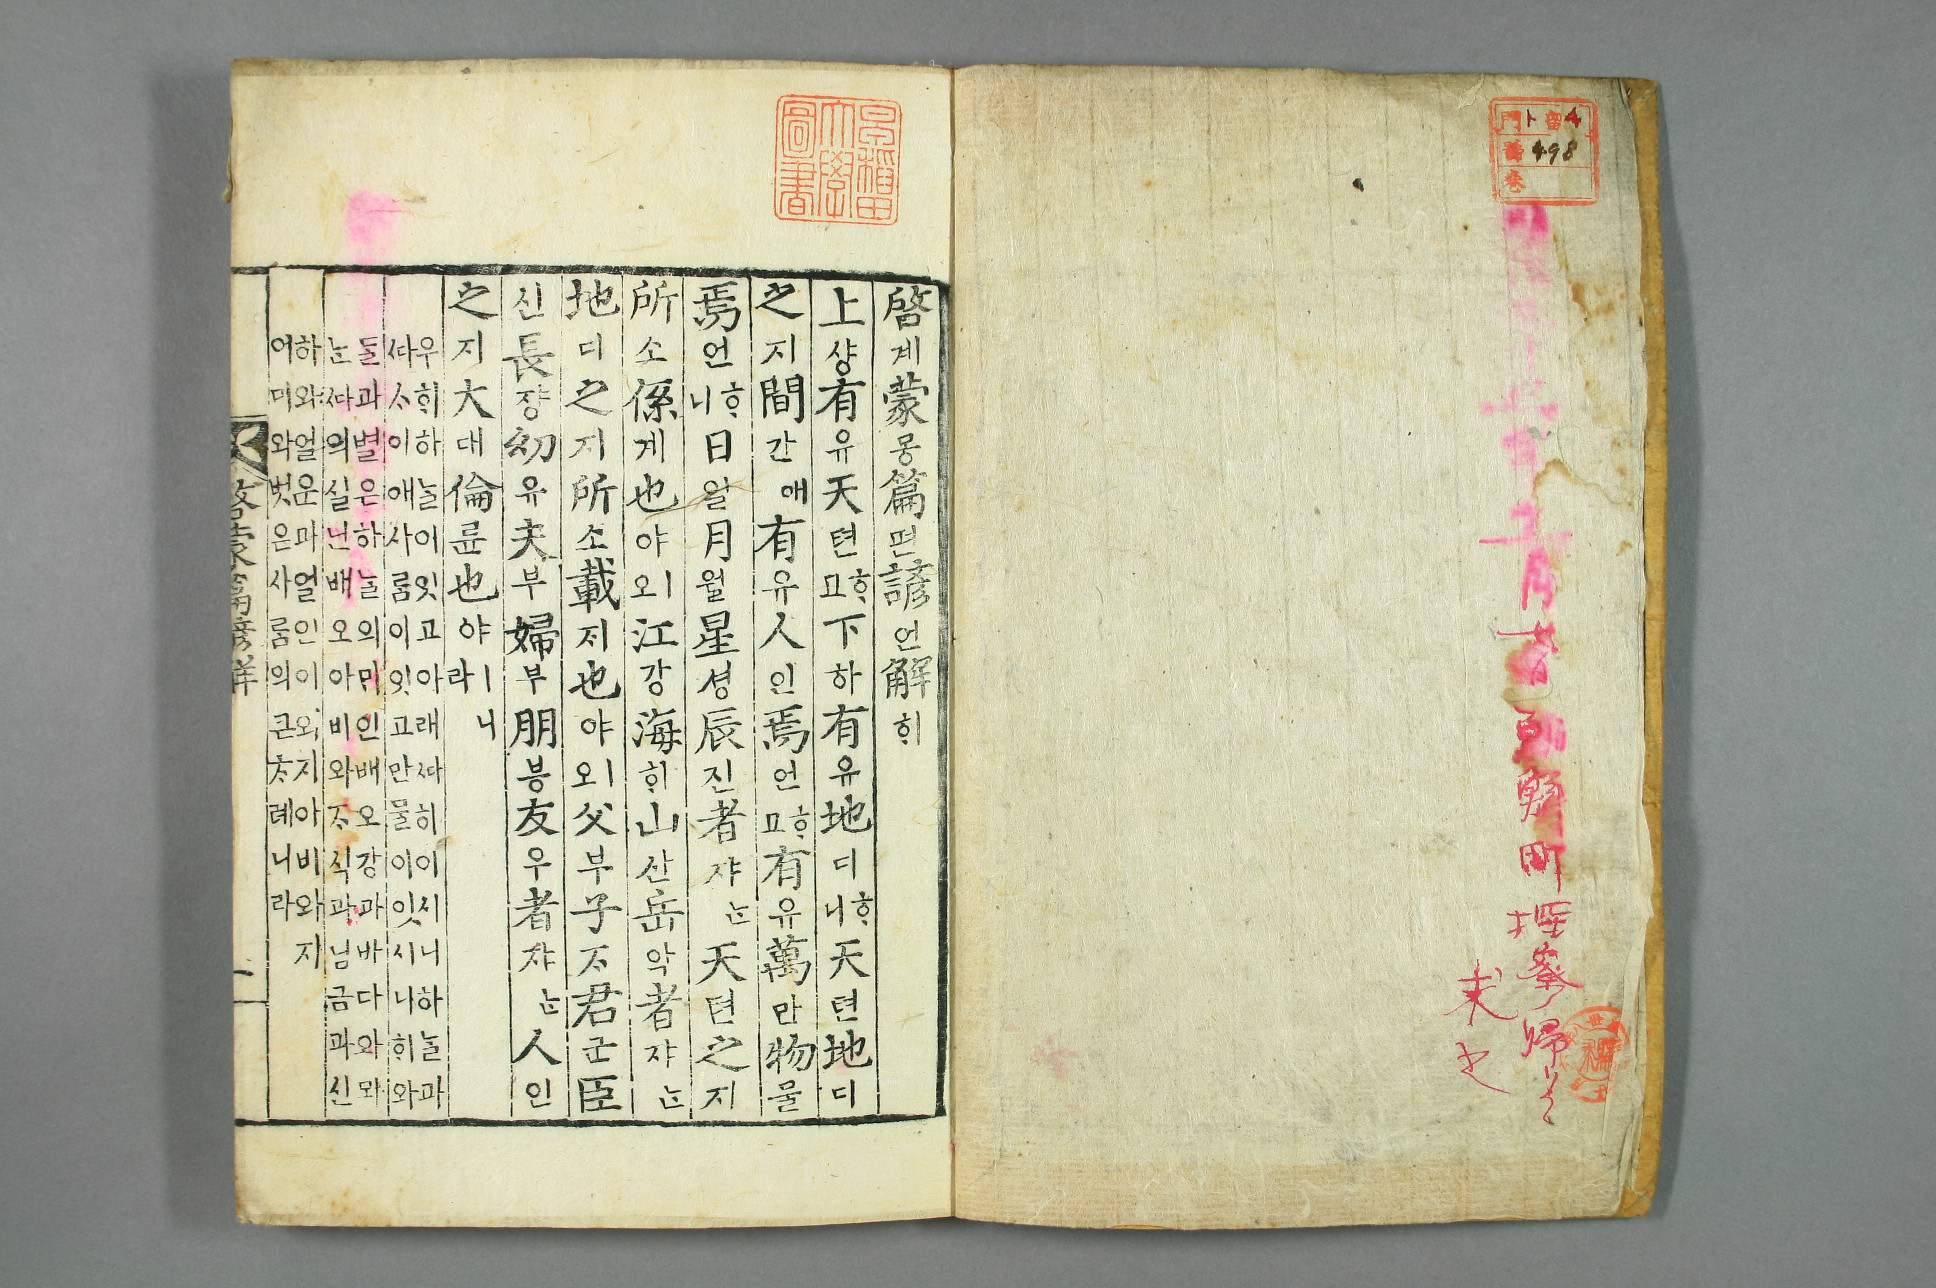 門ト番4
號498
卷
早稻田
大學
圖書
啓계蒙몽篇편諺언解ᄒᆡ
上샹有유天텬ᄒᆞ고下하有유地디ᄒᆞ니天텬地디
之지間간애有유人인焉언ᄒᆞ고有유萬만物물
焉언ᄒᆞ니日일月월星셩辰진者쟈ᄂᆞᆫ天텬之지
所소係계也야ㅣ오江강海ᄒᆡ山산岳악者쟈ᄂᆞᆫ
地디之지所소載ᄌᆡ也야ㅣ오父부子ᄌᆞ君군臣
신長쟝幼유夫부婦부朋븡友우者쟈ᄂᆞᆫ人인
之지大대倫륜也야ㅣ니라
우ᄒᆡ하ᄂᆞᆯ이잇고아래ᄯᅡ히이시니하ᄂᆞᆯ과
ᄯᅡᄉᆞ이애사ᄅᆞᆷ이잇고만물이잇시니ᄒᆡ와
ᄃᆞᆯ과별은하ᄂᆞᆯ의ᄆᆡ인배오강과바다와뫼
ᄂᆞᆫᄯᅡ의실닌배오아비와ᄌᆞ식과님금과신
하와얼운과얼인이와지아비와지
어미와벗은사ᄅᆞᆷ의큰ᄎᆞ례니라
啓蒙篇諺解
一